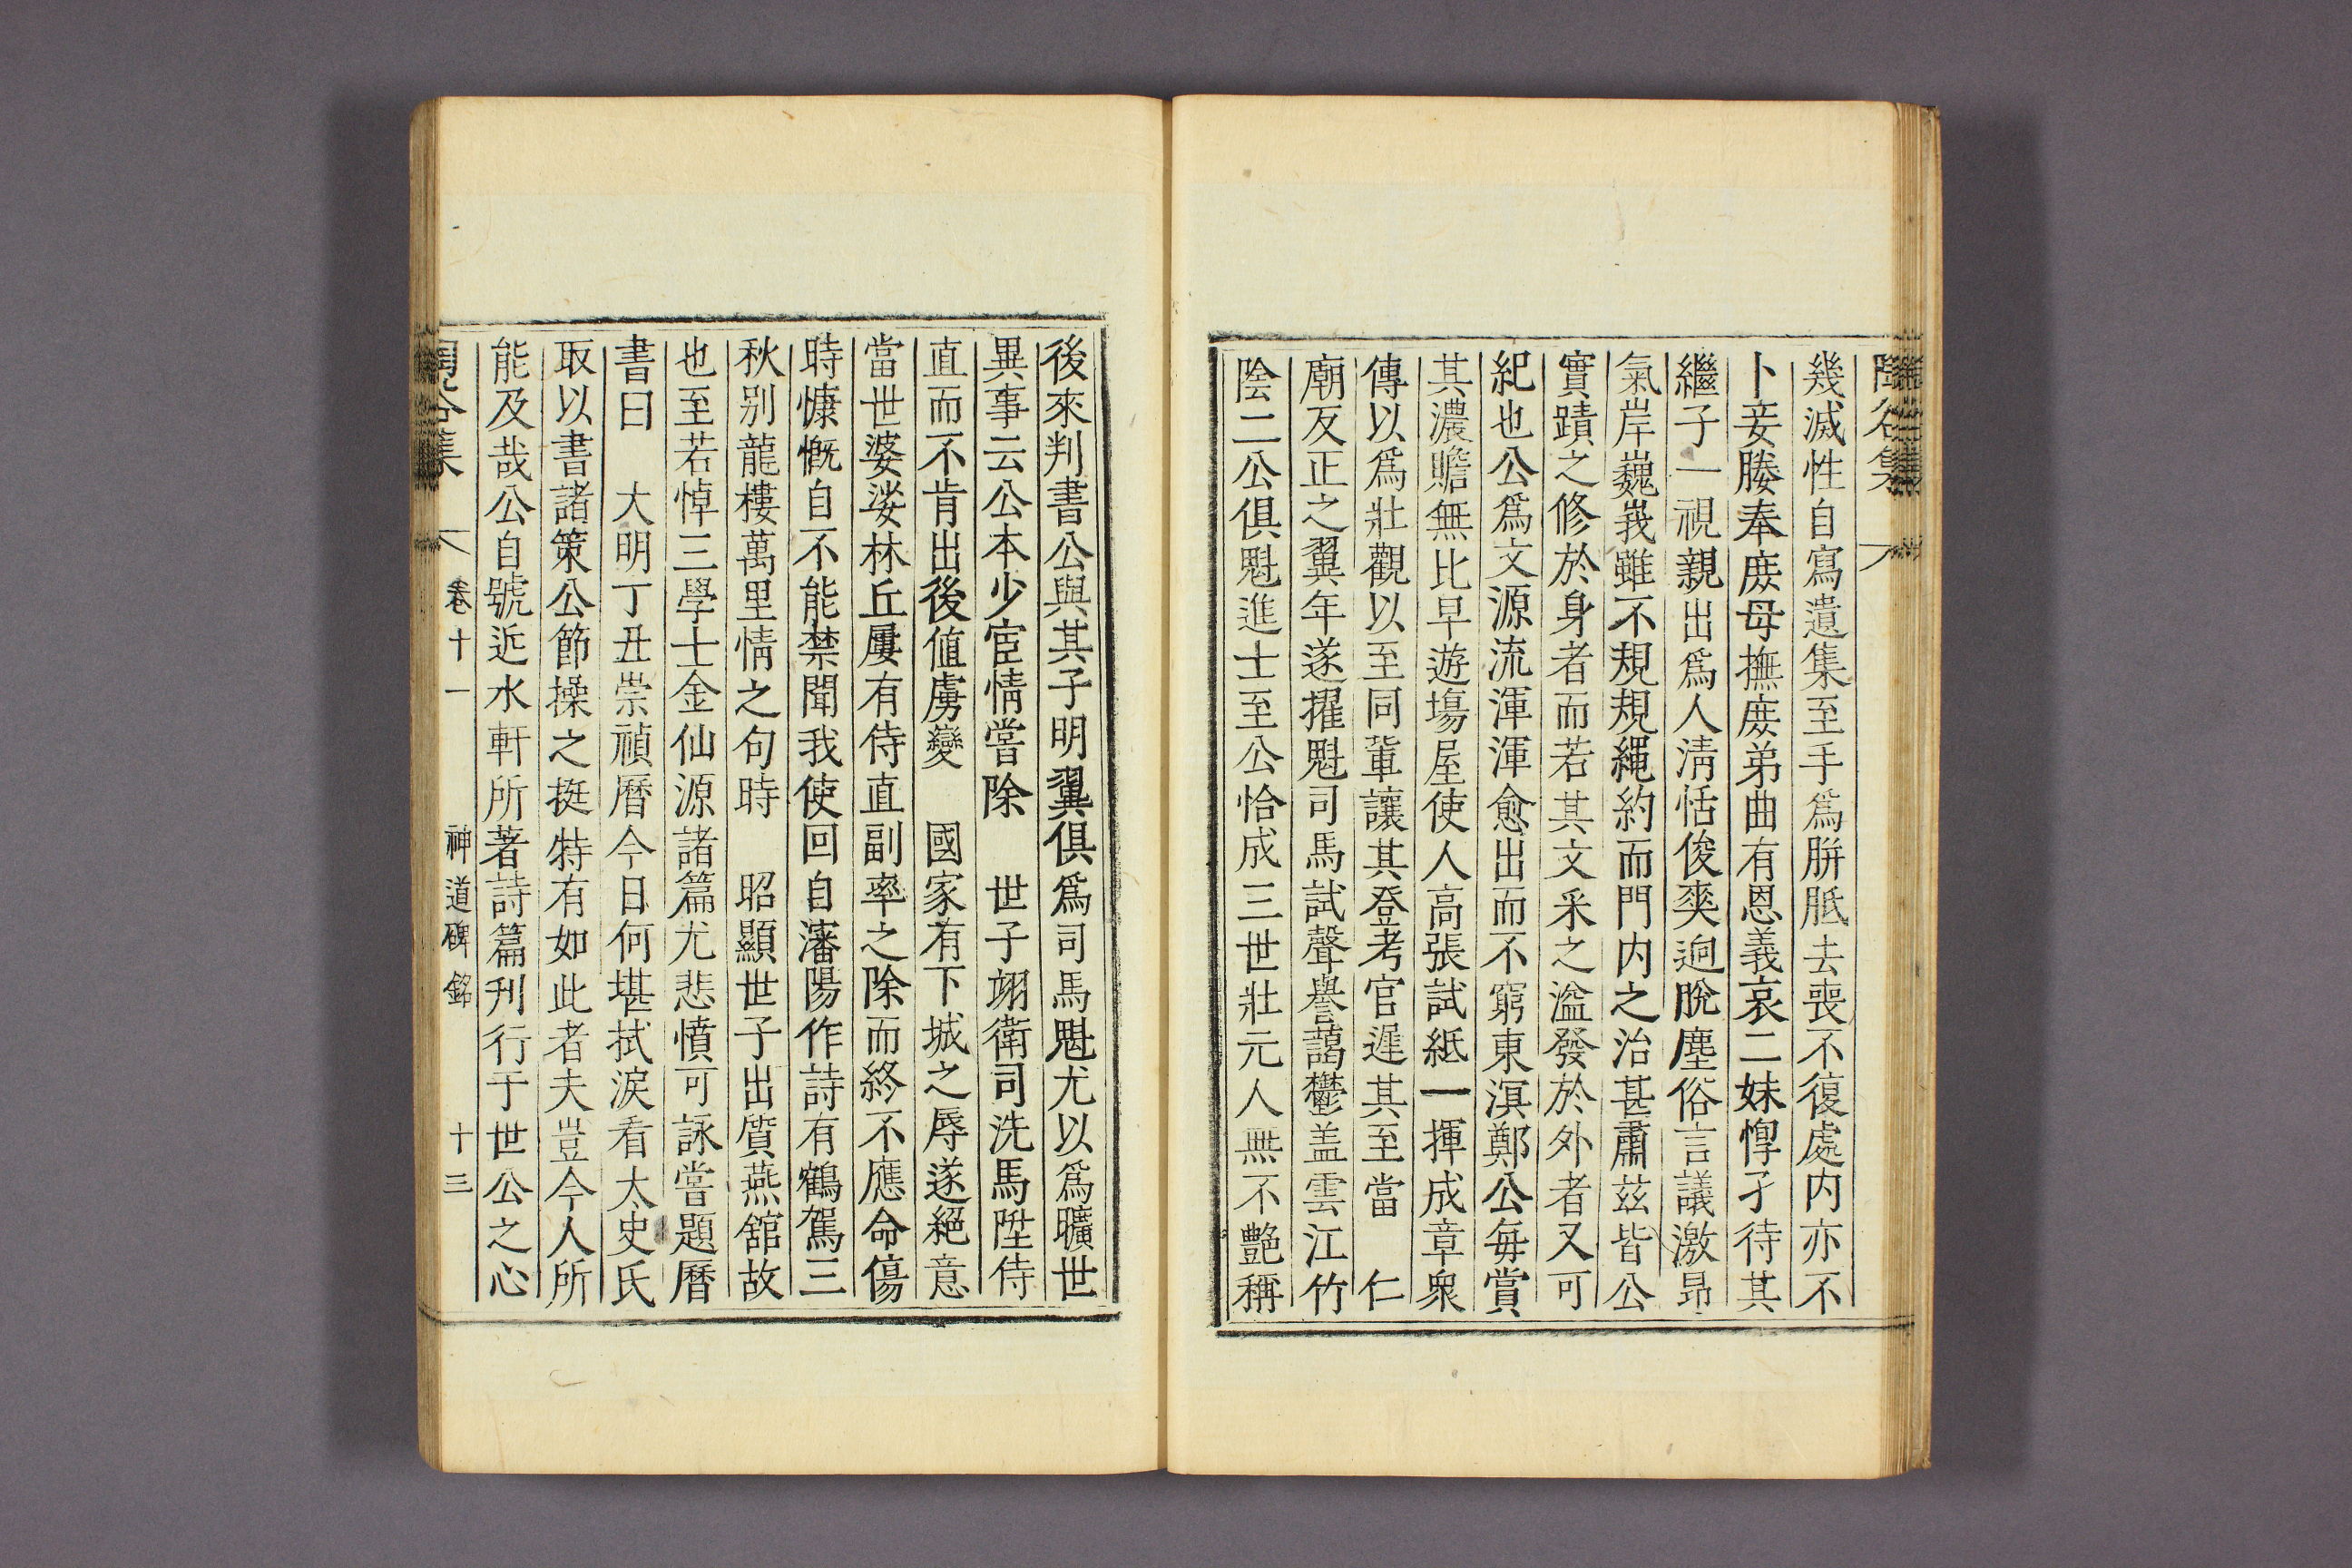 幾滅性自寫遺集至手爲胼胝去喪不復處内亦不
卜妾媵奉庶母撫庶弟曲有恩義哀二妹惸孑待其
繼子一視親出爲人淸恬俊爽逈脫塵俗言議激昻
氣岸巍峩雖不規規繩約而門内之治甚肅玆皆公
實蹟之修於身者而若其文采之溢發於外者又可
紀也公爲文源流渾渾愈出而不窮東溟鄭公每賞
其濃贍無比早遊塲屋使人高張試紙一揮成章衆
傳以爲壯觀以至同軰讓其登考官遅其至當 仁
廟反正之翼年遂擢魁司馬試聲譽藹鬱盖雲江竹
陰二公俱魁進士至公恰成三世壯元人無不艷稱
後來判書公與其子明翼俱爲司馬魁尤以爲曠世
異事云公本少宦情嘗除 世子翊衛司洗馬陞侍
直而不肯出後値虜變 國家有下城之辱遂絕意
當世婆娑林丘屢有侍直副率之除而終不應命傷
時慷慨自不能禁聞我使回自瀋陽作詩有鶴駕三
秋别龍樓萬里情之句時 昭顯世子出質燕舘故
也至若悼三學士金仙源諸篇尤悲憤可詠嘗題曆
書曰 大明丁丑崇禎曆今日何堪拭淚看太史氏
取以書諸策公節操之挺特有如此者夫豈今人所
能及哉公自號近水軒所著詩篇刋行于世公之心
卷十一 神道碑銘 十三